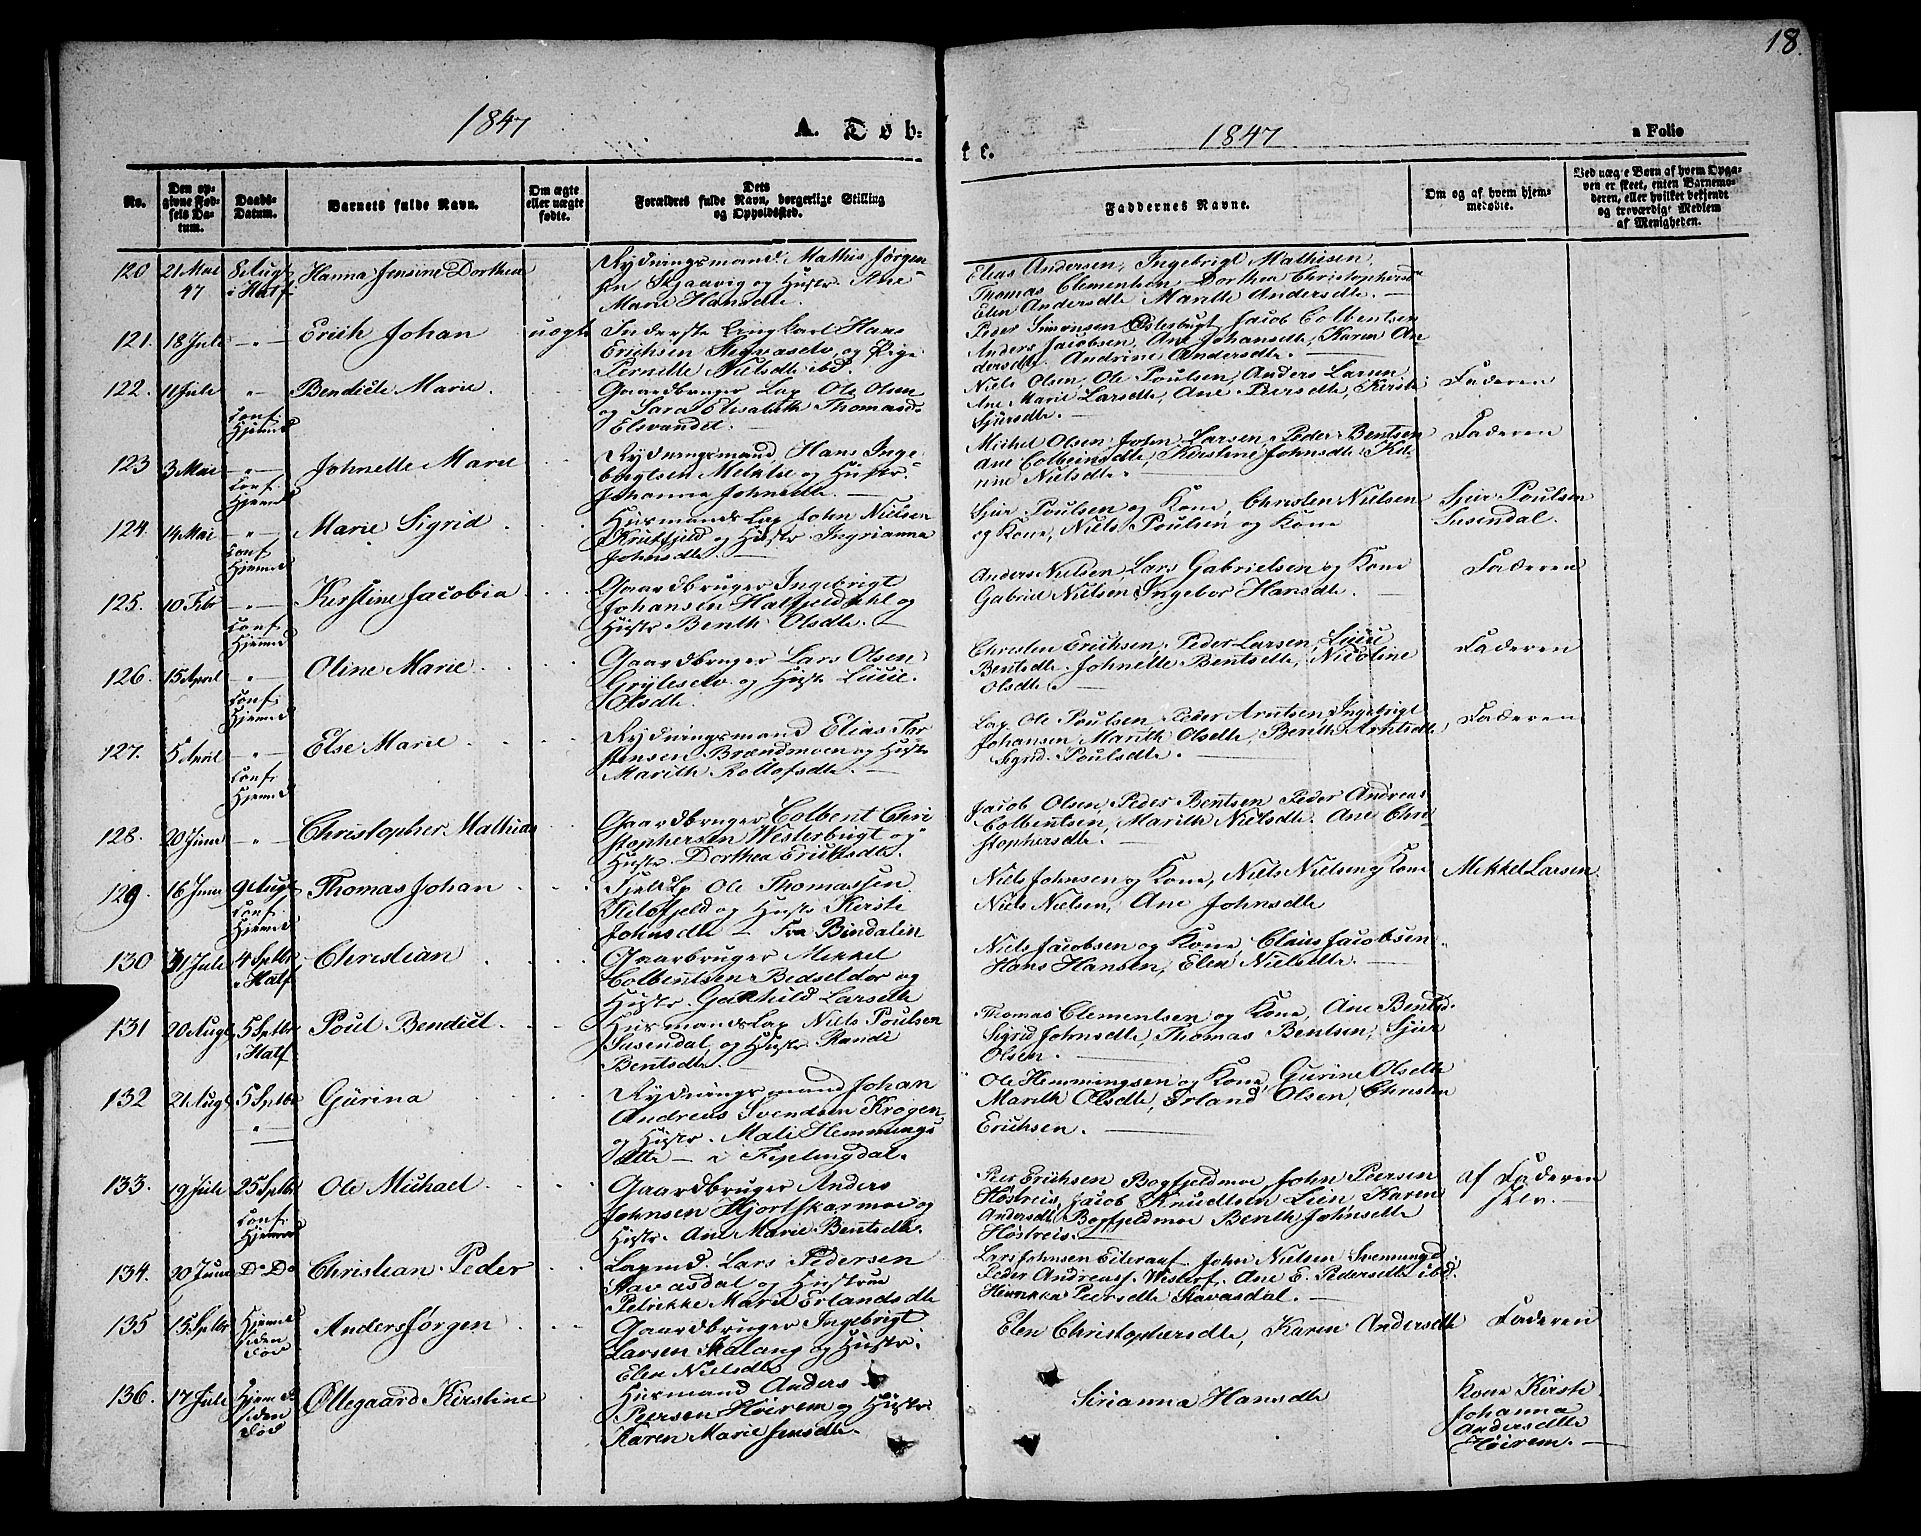 18.
1847
A. Døb-
te.
1847
a Folio
No.
Den op-
givne Fød-
sels Da-
tum.
Daabs-
Datum.
Barnets fulde Navn.
Om ægte
eller uægte
fødte.
Dets
Forældres fulde Navn, borgerlige Stilling
og Opholdssted.
Faddernes Navne.
Om og af hvem hjem-
medøbte.
Ved uægte Børn af hvem Opga-
ven er skeet, enten Barnemo-
deren, eller hvilket bekjendt
og troværdigt Medlem
af Menigheden.
120
21 Mai
47
8 Augt
i Hatf
Hanna Jensine Dorthea
Rydningsmand Mathis Jørgen
sen Skjaavig og Hustr Ane
Marie Hansdtr.
Elias Andersen, Ingebrigt Mathisen,
Thomas Clementsen, Dorthea Christophersd
Elen Andersdtr Marith Andersdtr.
121.
18 Juli
- " -
Erich Johan
uægte
Inderste Ungkarl Hans
Erichsen og
Nielsdtr ibd.
Peder Simonsen Østerbugt Jacob Colbentsen
Anders Jacobsen, Ane Johansdtr, Karen An
dersdtr. Andrine Andersdtr.
122.
11 Juli
"
Conf.
Hjemed
Bendicte Marie
Gaardbruger Lap Ole Olsen
og Sara Elisabeth Thomasd
Elsvandet.
Niels Olsen, Ole Poulsen, Anders Larsen
Ane Marie Larsdtr, Ane Peersdtr, Kirsti
Sjursdtr.
Faderen
123
3 Mai
- " -
Conf.
Hjemed
Johnette Marie
Rydningsmand Hans Inge
brigtsen og Hustr
Johanna Johnsdtr.
Michel Olsen, John Larsen, Peder Bentsen
Ane Colbeinsdtr, Kirstine Johnsdtr
Nielsdtr.
Faderen
124.
14 Mai
- " -
Conf.
Hjemed
Marie Sigrid
Huusmands Lap John Nielsen
Krutfjeld og Hustr Ingrianna
Johnsdtr
Sjur Poulsen og Kone, Christen Nielsen
og Kone, Niels Poulsen og Kone
Sjur Poulsen
Susendal.
125.
10 Febr
- " -
Conf.
Hjemed
Kirstine Jacobia
Gaardbruger Ingebrigt
Johansen Hatfjelddahl og
Hustr Benth Olsdtr.
Anders Nielsen, Lars Gabrielsen og Kone
Gabriel Nielsen Ingebor Hansdtr.
Faderen
126.
15 April
- " -
Conf.
Hjemed
Oline Marie
Gaardbruger Lars Olsen
Grytselv og Hustr Lucie
Olsdtr.
Christen Erichsen, Peder Larsen, Lucie
Bentsdtr. Johnette Bentsdtr, Nicoline
Olsdtr.
Faderen
127.
5 April
- " -
Conf.
Hjemed
Else Marie
Rydningsmand Elias Tor
stensen Brændmoen og Hustr
Marith Rollofsdtr.
Lap Ole Poulsen, Peder Arntsen, Ingebrigt
Johansen Marith Olsdtr, Berith Arntsdtr,
Sigrid Poulsdtr.
Faderen
128.
20 Juni
- " -
Christopher Mathias
Gaardbruger Colbent Chri
stophersen Westerbugt og
Hustr. Dorthea Erichsdtr.
Jacob Olsen, Peder Bentsen Peder Andreas
Colbentsen, Marith Nielsdtr. Ane Chri
stophersdtr.
129
16 Juni
9 Augt
Conf.
Hjemed
Thomas Johan
Ole Thomassen
og Hustr Kirsti
Johnsdtr - Fra Bindalen
Niels Johnsen og Kone, Niels Nielsen og Kone
Niels Nielsen, Ane Johnsdtr
Mekkel Larsen
130
31 Juli
4 Septbr
i Hatf
Christian
Gaarbruger Mekkel
Colbentsen Bedseldor og
Hustr. Gunhild Larsdtr
Niels Jacobsen og Kone, Claus Jacobsen
Hans Hansen, Elen Nielsdtr.
131
20 Augt
5 Septbr
i Hatf
Poul Bendict
Huusmands Lap Niels Poulsen
Susendal og Hustr Randi
Bentsdtr.
Thomas Clementsen og Kone, Ane Bentsd.
Sigrid Johnsdtr, Thomas Bentsen, Sjur
Olsen.
132
21 Augt
5 Septbr
- " -
Gurina
Rydningsmand Johan
Andreas Svendsen Krogen
og Hustr. Mali Hemmings
dtr - i Fiplingdal.
Ole Hemmingsen og Kone, Gurine Olsdtr
Marith Olsdtr, Erland Olsen Christen
Erichsen.
133.
19 Juli
25 Septbr
Conf.
Hjemmed
Ole Michael
Gaardbruger Anders
Johnsen Hjortskarmoe og
Hustr. Ane Marie Bentsdtr.
Peer Erichsen Bogfjeldmoe John Peersen
Høstreis, Jacob Knudtsen Lien Karen
Andersdtr Bogfjeldmoe Berith Johnsdtr
Høstreis.
af Faderen
selv.
134.
30 Juni
Do Do
Christian Peder
Lapmd. Lars Pedersen
Stavasdal og Hustrue
Petrikke Marie Erlandsdtr
Lars Johnsen Eiteraaf. John Nielsen Svenningd
Peder Andreasf. Westerf. Ane E. Pedersdtr ibd.
Henrikka Peersdtr Stavasdal.
135
15 Septbr
Hjemed
siden
død
Anders Jørgen
Gaardbruger Ingebrigt
Larsen og Hustr.
Elen Nielsdtr
Elen Christophersdtr, Karen Andersdtr
Faderen
136.
17 Juli
Hjemed
siden
død
Øllegaard Kirstine
Huusmand Anders
Peersen Høirem og Hustr.
Karen Marie Jensdtr.
Sirianna Hansdtr
Kone Kirsti
Johanna
Andersdtr
Høirem.